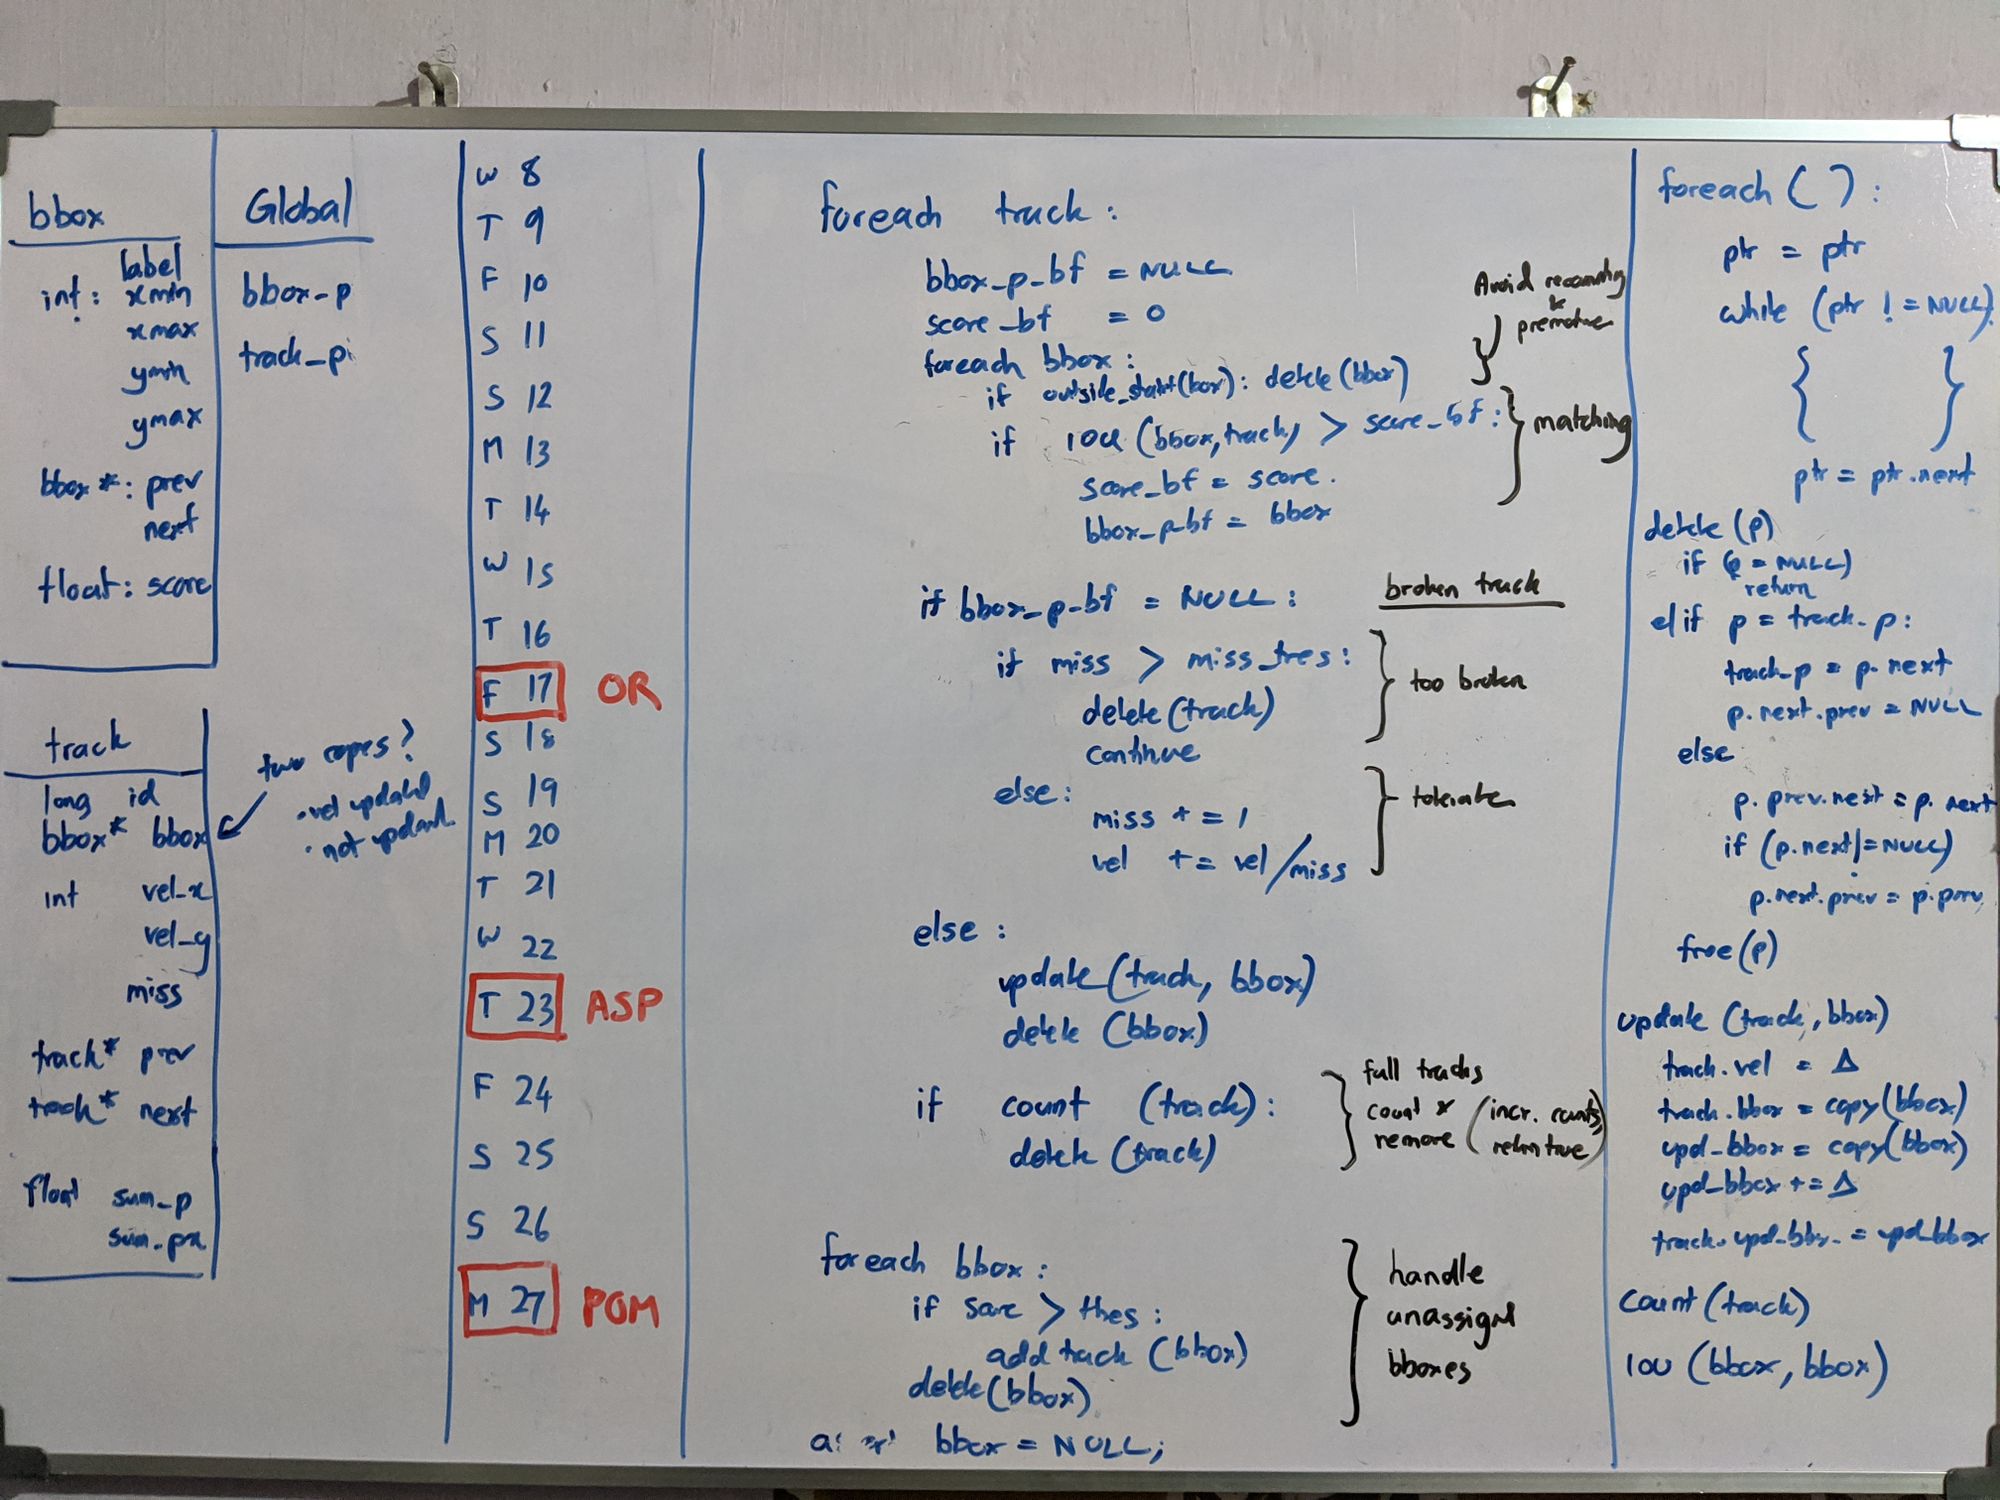 bbox
int: label
xmin
xmax
ymin
ymax
bbox*: prev
next
float: score
track
long id
bbox* bbox
int vel_x
vel_y
miss
track* prev
track* next
float sum_p
sum_px
Global
bbox_p
track_p
two copies?
. vel updated
. not updated
W 8
T 9
F 10
S 11
S 12
M 13
T 14
W 15
T 16
F 17 OR
S 18
S 19
M 20
T 21
W 22
T 23 ASP
F 24
S 25
S 26
M 27 POM
foreach track:
bbox_p_bf = NULL
score_bf = 0
foreach bbox:
if outside_start(box): delete(bbox)
if IOU (bbox,track) > score_bf:
score_bf = score.
bbox_p_bf = bbox
Avoid recounting
&
premature
matching
if bbox_p_bf = NULL:
broken track
if miss > miss_tres:
delete(track)
continue
too broken
else:
miss += 1
vel += vel/miss
tolerate
else:
update(track, bbox)
delete (bbox)
if count (track):
delete (track)
full tracks
count & (incr. counts,
remove return true)
foreach bbox:
if score > thes:
add track (bbox)
delete(bbox)
handle
unassigned
bboxes
bbox = NULL;
foreach ( ):
ptr = ptr
while (ptr != NULL)
{ }
ptr = ptr.next
delete (p)
if (p = NULL)
return
elif p = track_p:
track_p = p.next
p.next.prev = NULL
else
p.prev.next = p.next
if (p.next != NULL)
p.next.prev = p.prev
free(p)
update (track, bbox)
track.vel = Δ
track.bbox = copy(bbox)
upd_bbox = copy(bbox)
upd_bbox += Δ
track.upd_bbx = upd_bbox
count(track)
IOU (bbox, bbox)